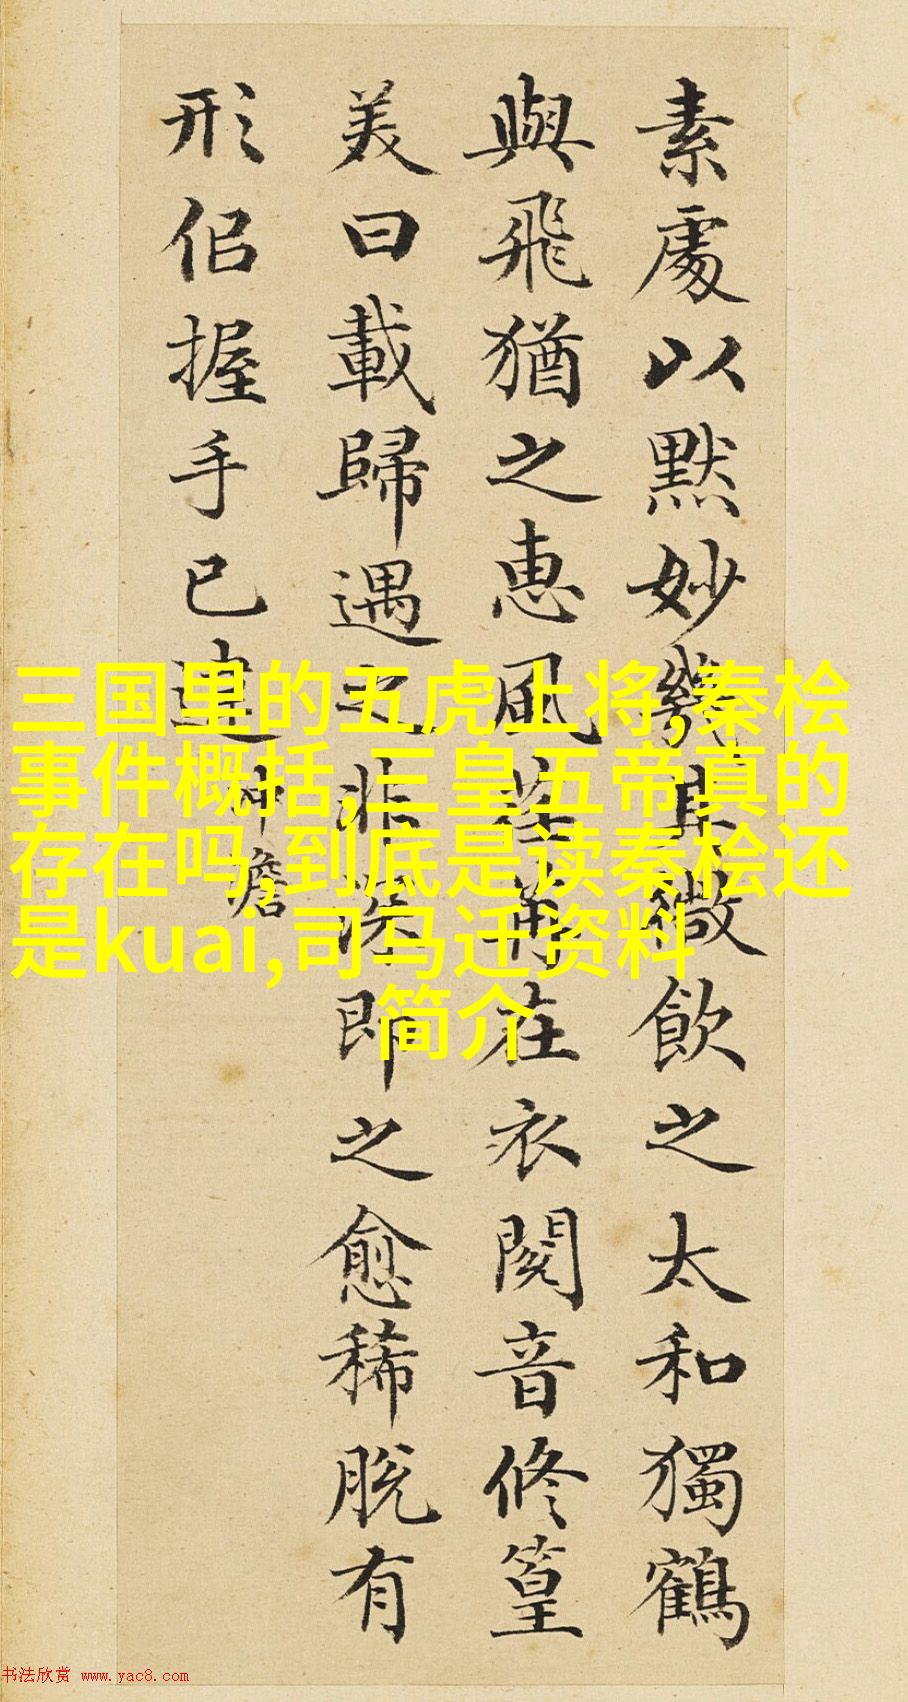 素處以默妙機其微飲之太和獨鶴
與飛猶之惠風荏苒在衣閱音修篁
美曰載歸遇之非深即之愈稀脫有
形侣握手已違 沖澹
三国里的五虎上将,秦桧
事件概括,三皇五帝真的
存在吗,到底是读秦桧还
是kuai,司马迁资料
简介
书法欣赏 www.yac8.com